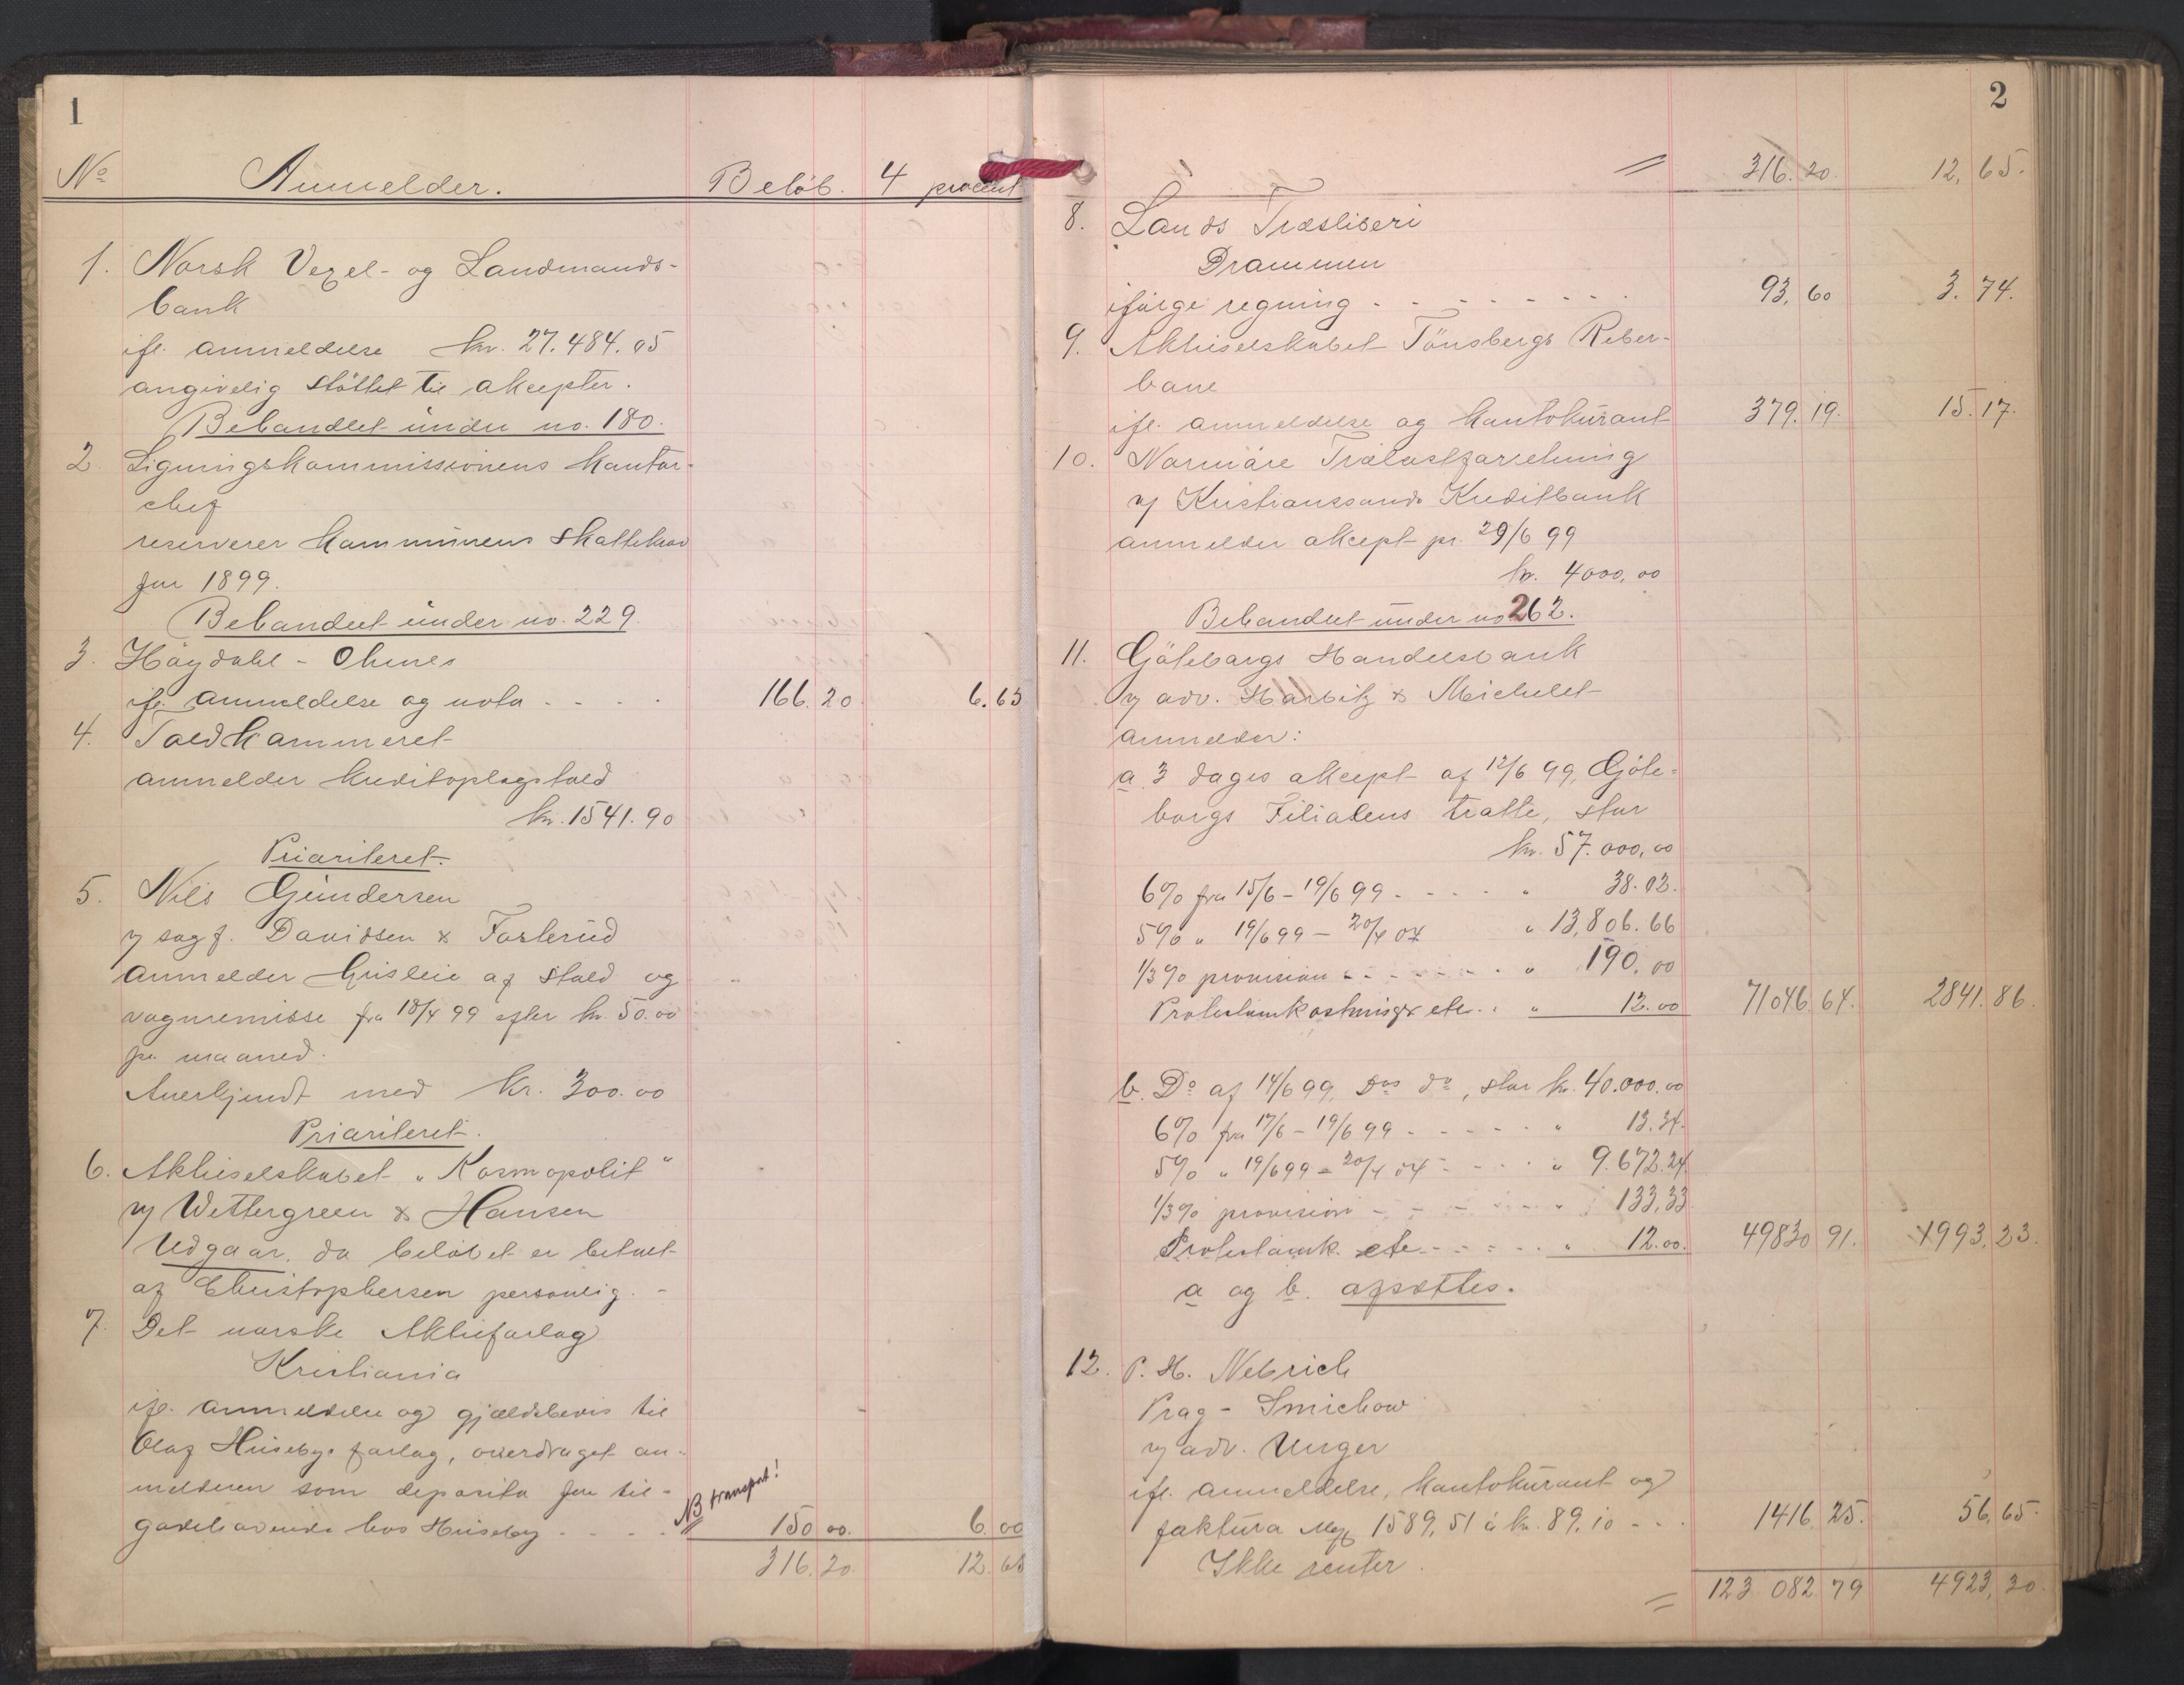 1
No Anmelder. Beløb. 4 procent
1. Norsk Vexel- og Landmands-
bank
ifl. anmeldelse kr. 27.484.05
angivelig støttet til akcepter.
Behandlet under no. 180.
2. Ligningskommissionens kontor-
chef
reserverer kommunens skattekrav
for 1899.
Behandlet under no. 229.
3. Høydahl-Ohmes
ifl. anmeldelse og nota - - - - 166.20 6.65
4. Toldkammeret
anmelder kreditoplagstold
kr. 1541.90
Prioriteret.
5. Nils Gundersen
v/ sagf. Davidsen & Fosterud
anmelder husleie af stald og
vognremisse fra 18/4 99 efter kr. 50.00
pr. maaned.
Anerkjendt med kr. 300.00
Prioriteret.
6. Aktieselskabet "Kosmopolit"
v/ Wettergreen & Hansen
Udgaar, da beløbet er betalt
af Christophersen personlig. -
7. Det norske Aktieforlag
Kristiania
ifl. anmeldelse og gjældsbevis til
Olaf Husebys forlag, overdraget an-
melderen som deposita for til-
godehavende hos Huseby - - - - NB transport! 150 00. 6.00
316.20. 12.65
2
316.20. 12,65.
8. Lands Træsliberi
Drammen
ifølge regning - - - - - - - - 93,60 3.74.
9. Aktieselskabet Tönsbergs Reber-
bane
ifl. anmeldelse og kontokurant 379.19. 15.17.
10. Normäre Trælastforretning
v/ Kristianssands Kreditbank
anmelder akcept pr. 29/6 99
kr. 4000,00
Behandlet under no 262.
11. Göteborgs Handelsbank
v/ adv. Harbitz & Michelet
anmelder:
a 3 dages akcept af 12/6 99, Göte-
borgs Filialens tratte, stor
kr. 57.000,00
6% fra 15/6 - 19/6 99 - - - - " 38.02.
5% " 19/6 99 - 20/4 04 " 13,806.66
1/3% provision - - - - - - - " 190.00
Protestomkostninger etc. . " 12.00 71046.64. 2841.86.
b. Do af 14/6 99, Dos do, stor kr. 40.000.00
6% fra 17/6 - 19/6 99 - - - - - - " 13.34.
5% " 19/6 99 - 20/4 04 - - - - " 9.672.24
1/3% provision - - - - - - - " 133,33
Protestomk. etc - - - - - - " 12.00. 49830 91. 1993.23.
a og b. afsættes.
12. P. H. Nebrich
Prag - Smichow
v/ adv. Unger
ifl. anmeldelse, kontokurant og
faktura 1589,51 à kr. 89,10 - - - 1416.25. 56,65.
Ikke renter.
123 082 79 4923,30.